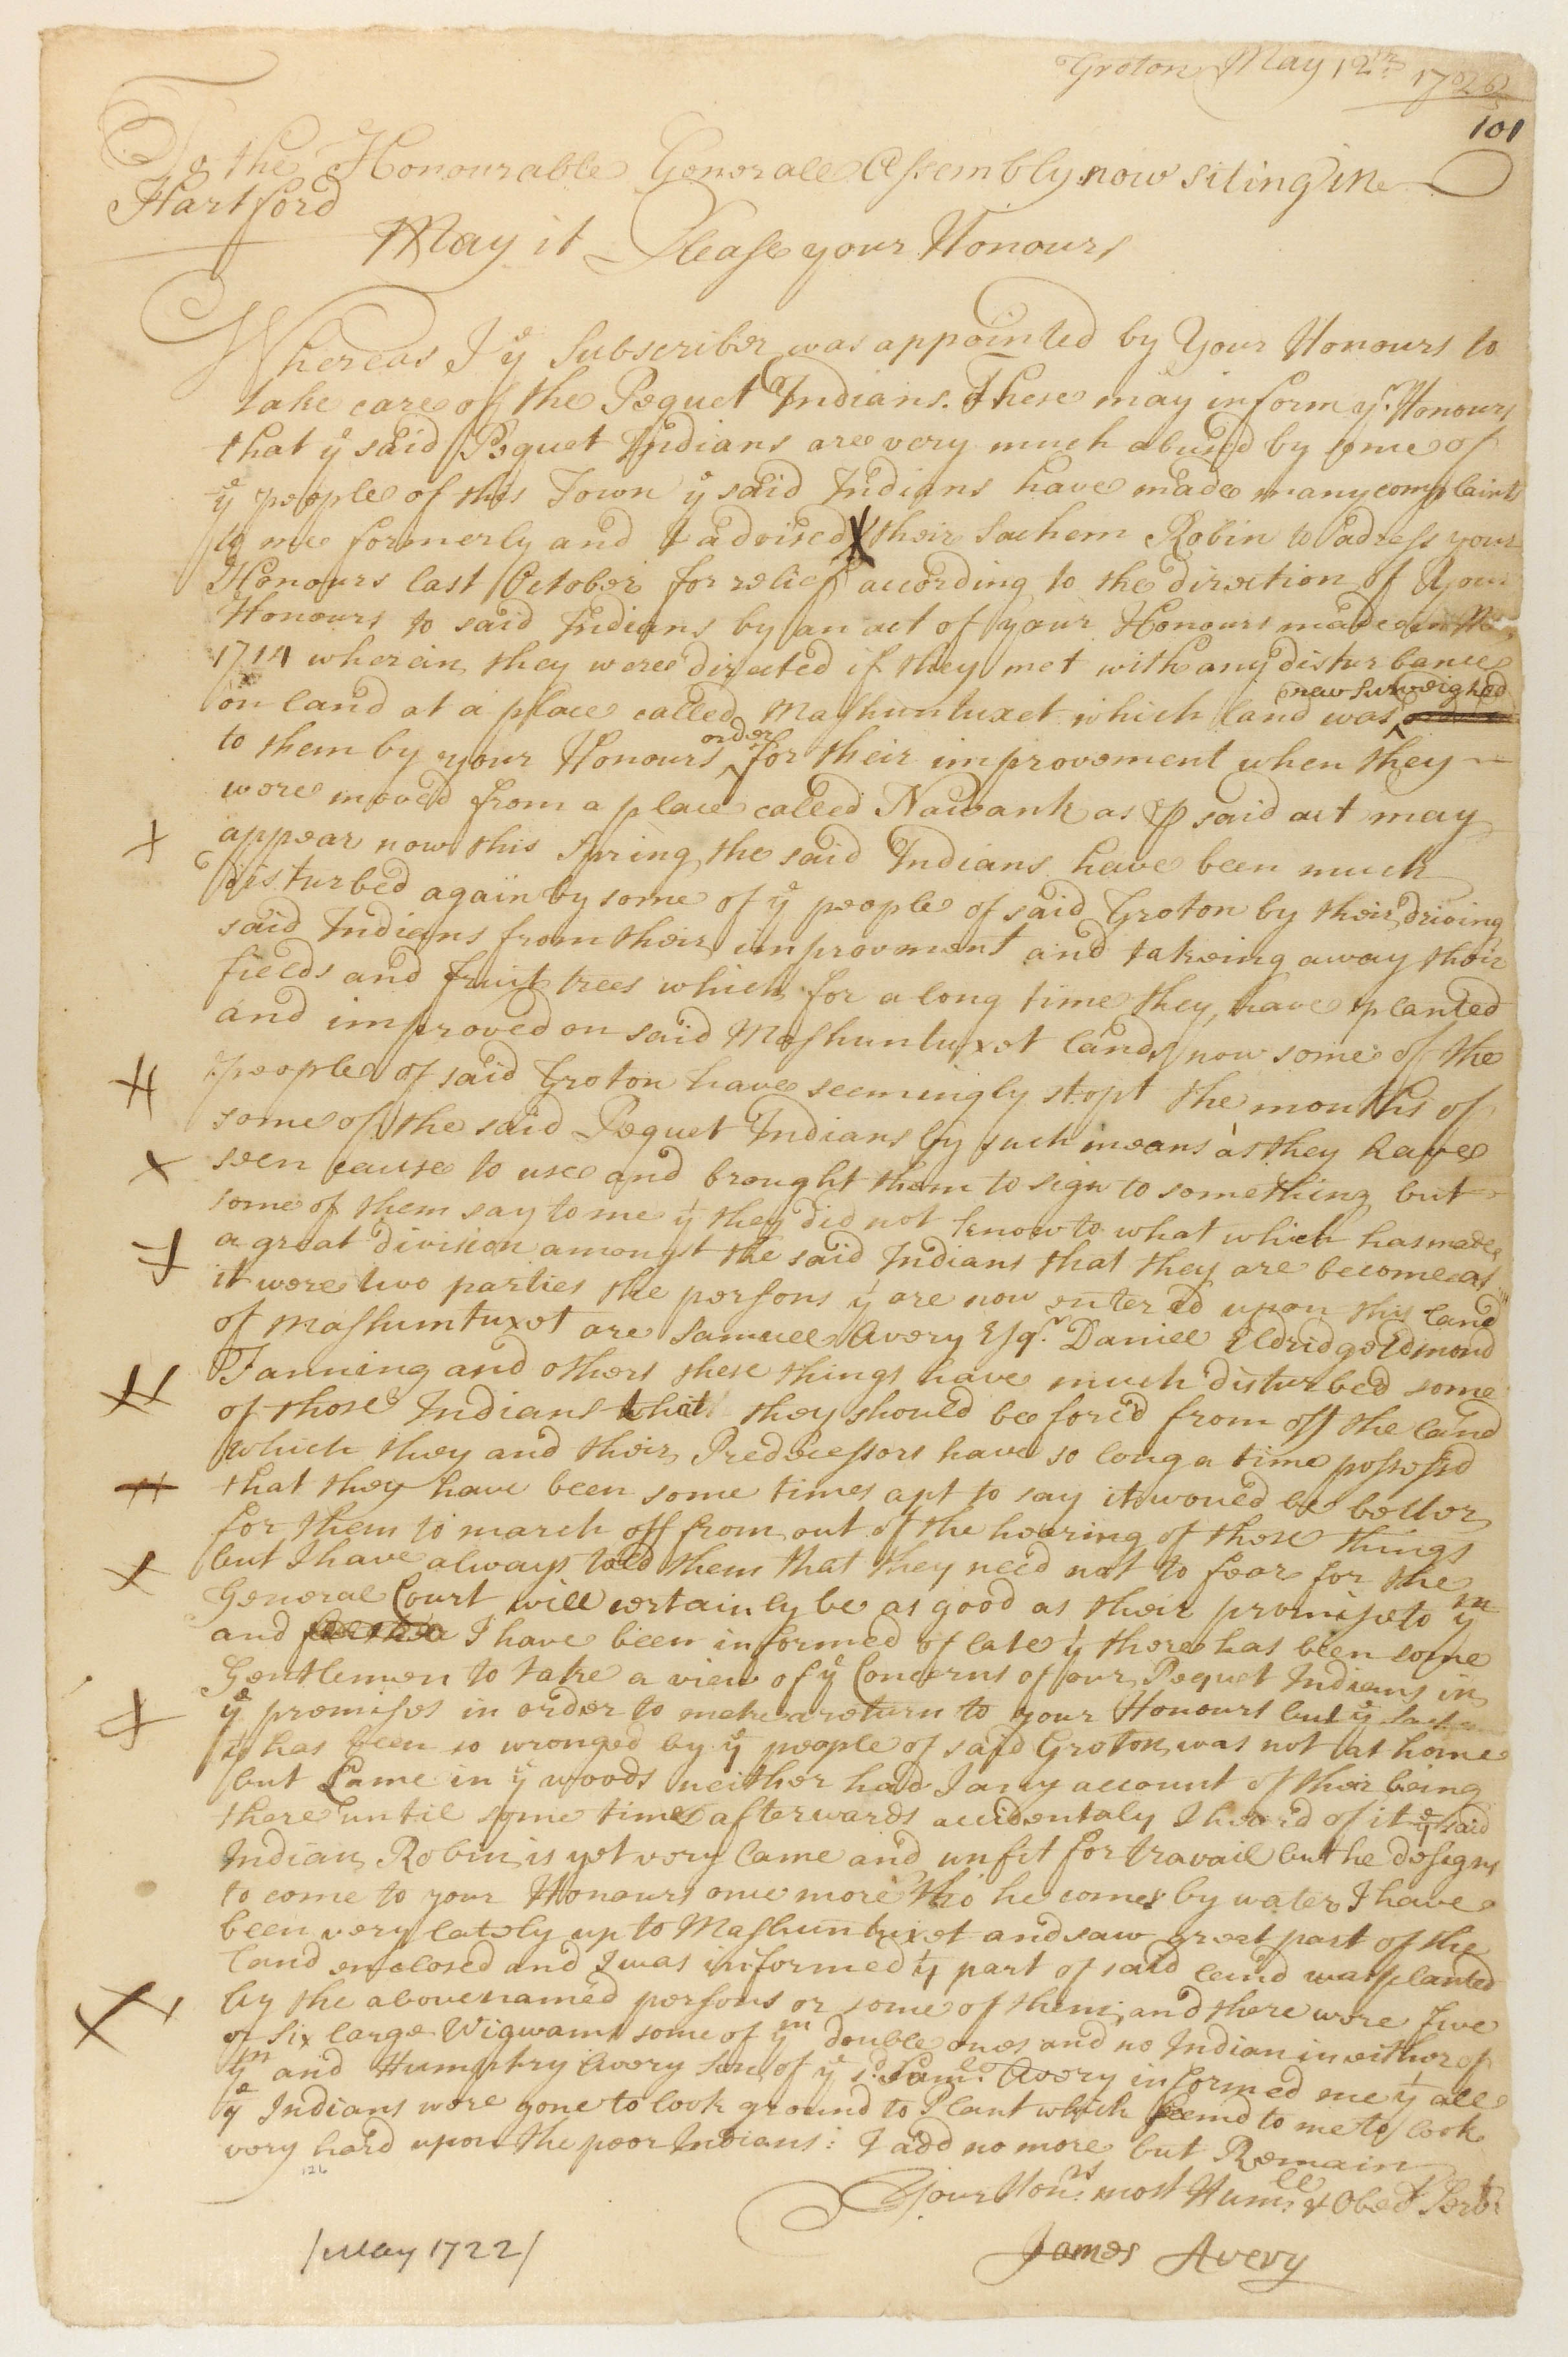 Groton May 12th 1722
101
To the Honourable Generall Assembly now siting in
Hartford
May it Please your Honours
Whereas I ye Subscriber was appointed by Your Honours to
take care of the Pequet Indians. These may inform yr Honours
that ye said Pequet Indians are very much abused by some of
ye people of this Town ye said Indians have made many complaints
to me formerly and I advised their Sachem Robin to adress your
Honours last October for relief according to the direction of Your
Honours to said Indians by an act of your Honours made in
1714 wherein they were directed if they met with any disturbance
on land at a place called Mashuntuxet which land was new Surveighed
to them by your Honours order for their improvement when they
were moved from a place called Nawank as p said act may
appear now this Spring the said Indians have been much
disturbed again by some of ye people of said Groton by their driving
said Indians from their improvment and takeing away their
fields and fruit trees which for a long time they have planted
and improved on said Mashuntuxet lands now some of the
people of said Groton have seemingly stopt the mouths of
some of the said Pequet Indians by such means as they have
seen cause to use and brought them to sign to something but
some of them say to me yt they did not know to what which has made
a great division amongst the said Indians that they are become as
it were two parties the persons yt are now entered upon this land
of Mashuntuxet are Samuell Avery Esqr Daniell Eldridg Edmond
Fanning and others these things have much disturbed some
of those Indians that they should bee forc'd from off the land
which they and their Predecessors have so long a time possessd
that they have been some times apt to say it would be better
for them to march off from out of the hearing of these things
but I have always told them that they need not to fear for the
General Court will certainly be as good as their promise to ym
and I have been informed of late yt there has been some
Gentlemen to take a view of ye Concerns of our Pequet Indians in
ye premises in order to make a return to your Honours but ye
yt has been so wronged by ye people of said Groton was not at home
but Lame in ye woods neither had I any account of their being
there until some time afterwards accidentaly I heard of it ye said
Indian Robin is yet very lame and unfit for travail but he designs
to come to your Honours once more tho he comes by water I have
been very lately up to Mashuntuxet and saw great part of the
land enclosed and I was informed yt part of said land was planted
by the abovenamed persons or some of them; and there were five
or six large Wigwams some of ym double ones and no Indian in either of
ym and Humphry Avery Son of ye sd Samll Avery informed me yt all
ye Indians were gone to look ground to Plant which seemd to me to look
very hard upon the poor Indians: I add no more but Remain
126
Your Honrs most Humll & Obedt Servt
James Avery
/May 1722/